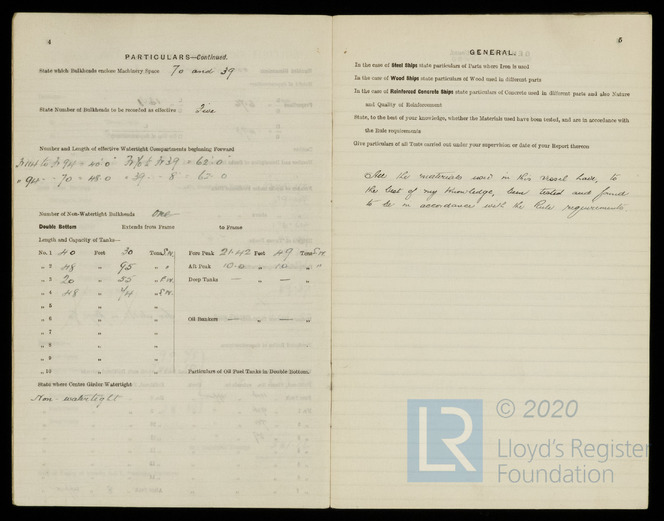 4
PARTICULARS—Continued.
State which Bulkheads enclose Machinery Space 70 and 39
State Number of Bulkheads to be recorded as effective Five
Number and Length of effective Watertight Compartments beginning Forward
Fr 114 to Fr 94 = 40'.0" Fr 70 to Fr 39 = 62.0
" 94 - 70 = 48.0 " 39 - 8 = 62.0
Number of Non-Watertight Bulkheads One
Double Bottom Extends from Frame to Frame
Length and Capacity of Tanks—
No. 1 40 Feet 30 Tons F.W. Fore Peak 21.42 Feet 49 Tons F.W.
„ 2 48 „ 95 „ „ Aft Peak 10.0 „ 10 „ „
„ 3 20 „ 55 „ F.W. Deep Tanks — „ — „
„ 4 48 „ 74 „ F.W.
„ 5 „ „
„ 6 „ „ Oil Bunkers — „ — „
„ 7 „ „
„ 8 „ „
„ 9 „ „
„ 10 „ „ Particulars of Oil Fuel Tanks in Double Bottom.
State where Centre Girder Watertight
Non-watertight
5
GENERAL.
In the case of Steel Ships state particulars of Parts where Iron is used
In the case of Wood Ships state particulars of Wood used in different parts
In the case of Reinforced Concrete Ships state particulars of Concrete used in different parts and also Nature
and Quality of Reinforcement
State, to the best of your knowledge, whether the Materials used have been tested, and are in accordance with
the Rule requirements
Give particulars of all Tests carried out under your supervision or date of your Report thereon
All the materials used in this vessel have, to
the best of my knowledge, been tested and found
to be in accordance with the Rule requirements.
LR
© 2020
Lloyd's Register
Foundation